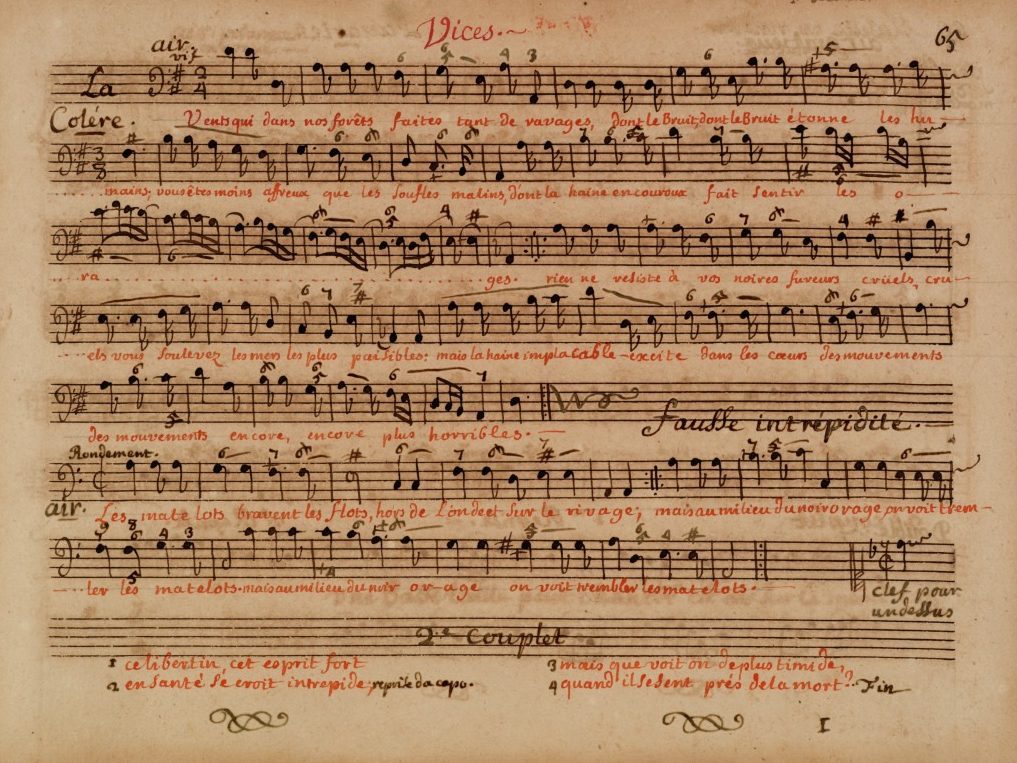 Vices.
65
air.
vif
La
Colére.
Vents qui dans nos forêts faites tant de ravages, dont le Bruit, dont le Bruit étonne les hu-
mains, vous êtes moins affreux que les soufles malins, dont la haine en couroux fait sentir les o-
ra-ges. rien ne resiste à vos noires fureurs crüels, cru-
els vous soulevez les mers les plus paisibles: mais la haine implacable excite dans les cœurs des mouvements
des mouvements encore, encore plus horribles.
Fausse intrépidité.
Rondement.
air.
Les matelots bravent les flots, hors de l'onde et sur le rivage; mais au milieu du noir orage on voit trem-
bler les matelots. mais au milieu du noir or-age on voit trembler les matelots.
clef pour
un dessus
2.e Couplet
1 ce libertin, cet esprit fort
2 en santé se croit intrepide; reprise da capo.
3 mais que voit on de plus timide,
4 quand il se sent prés de la mort? Fin
1